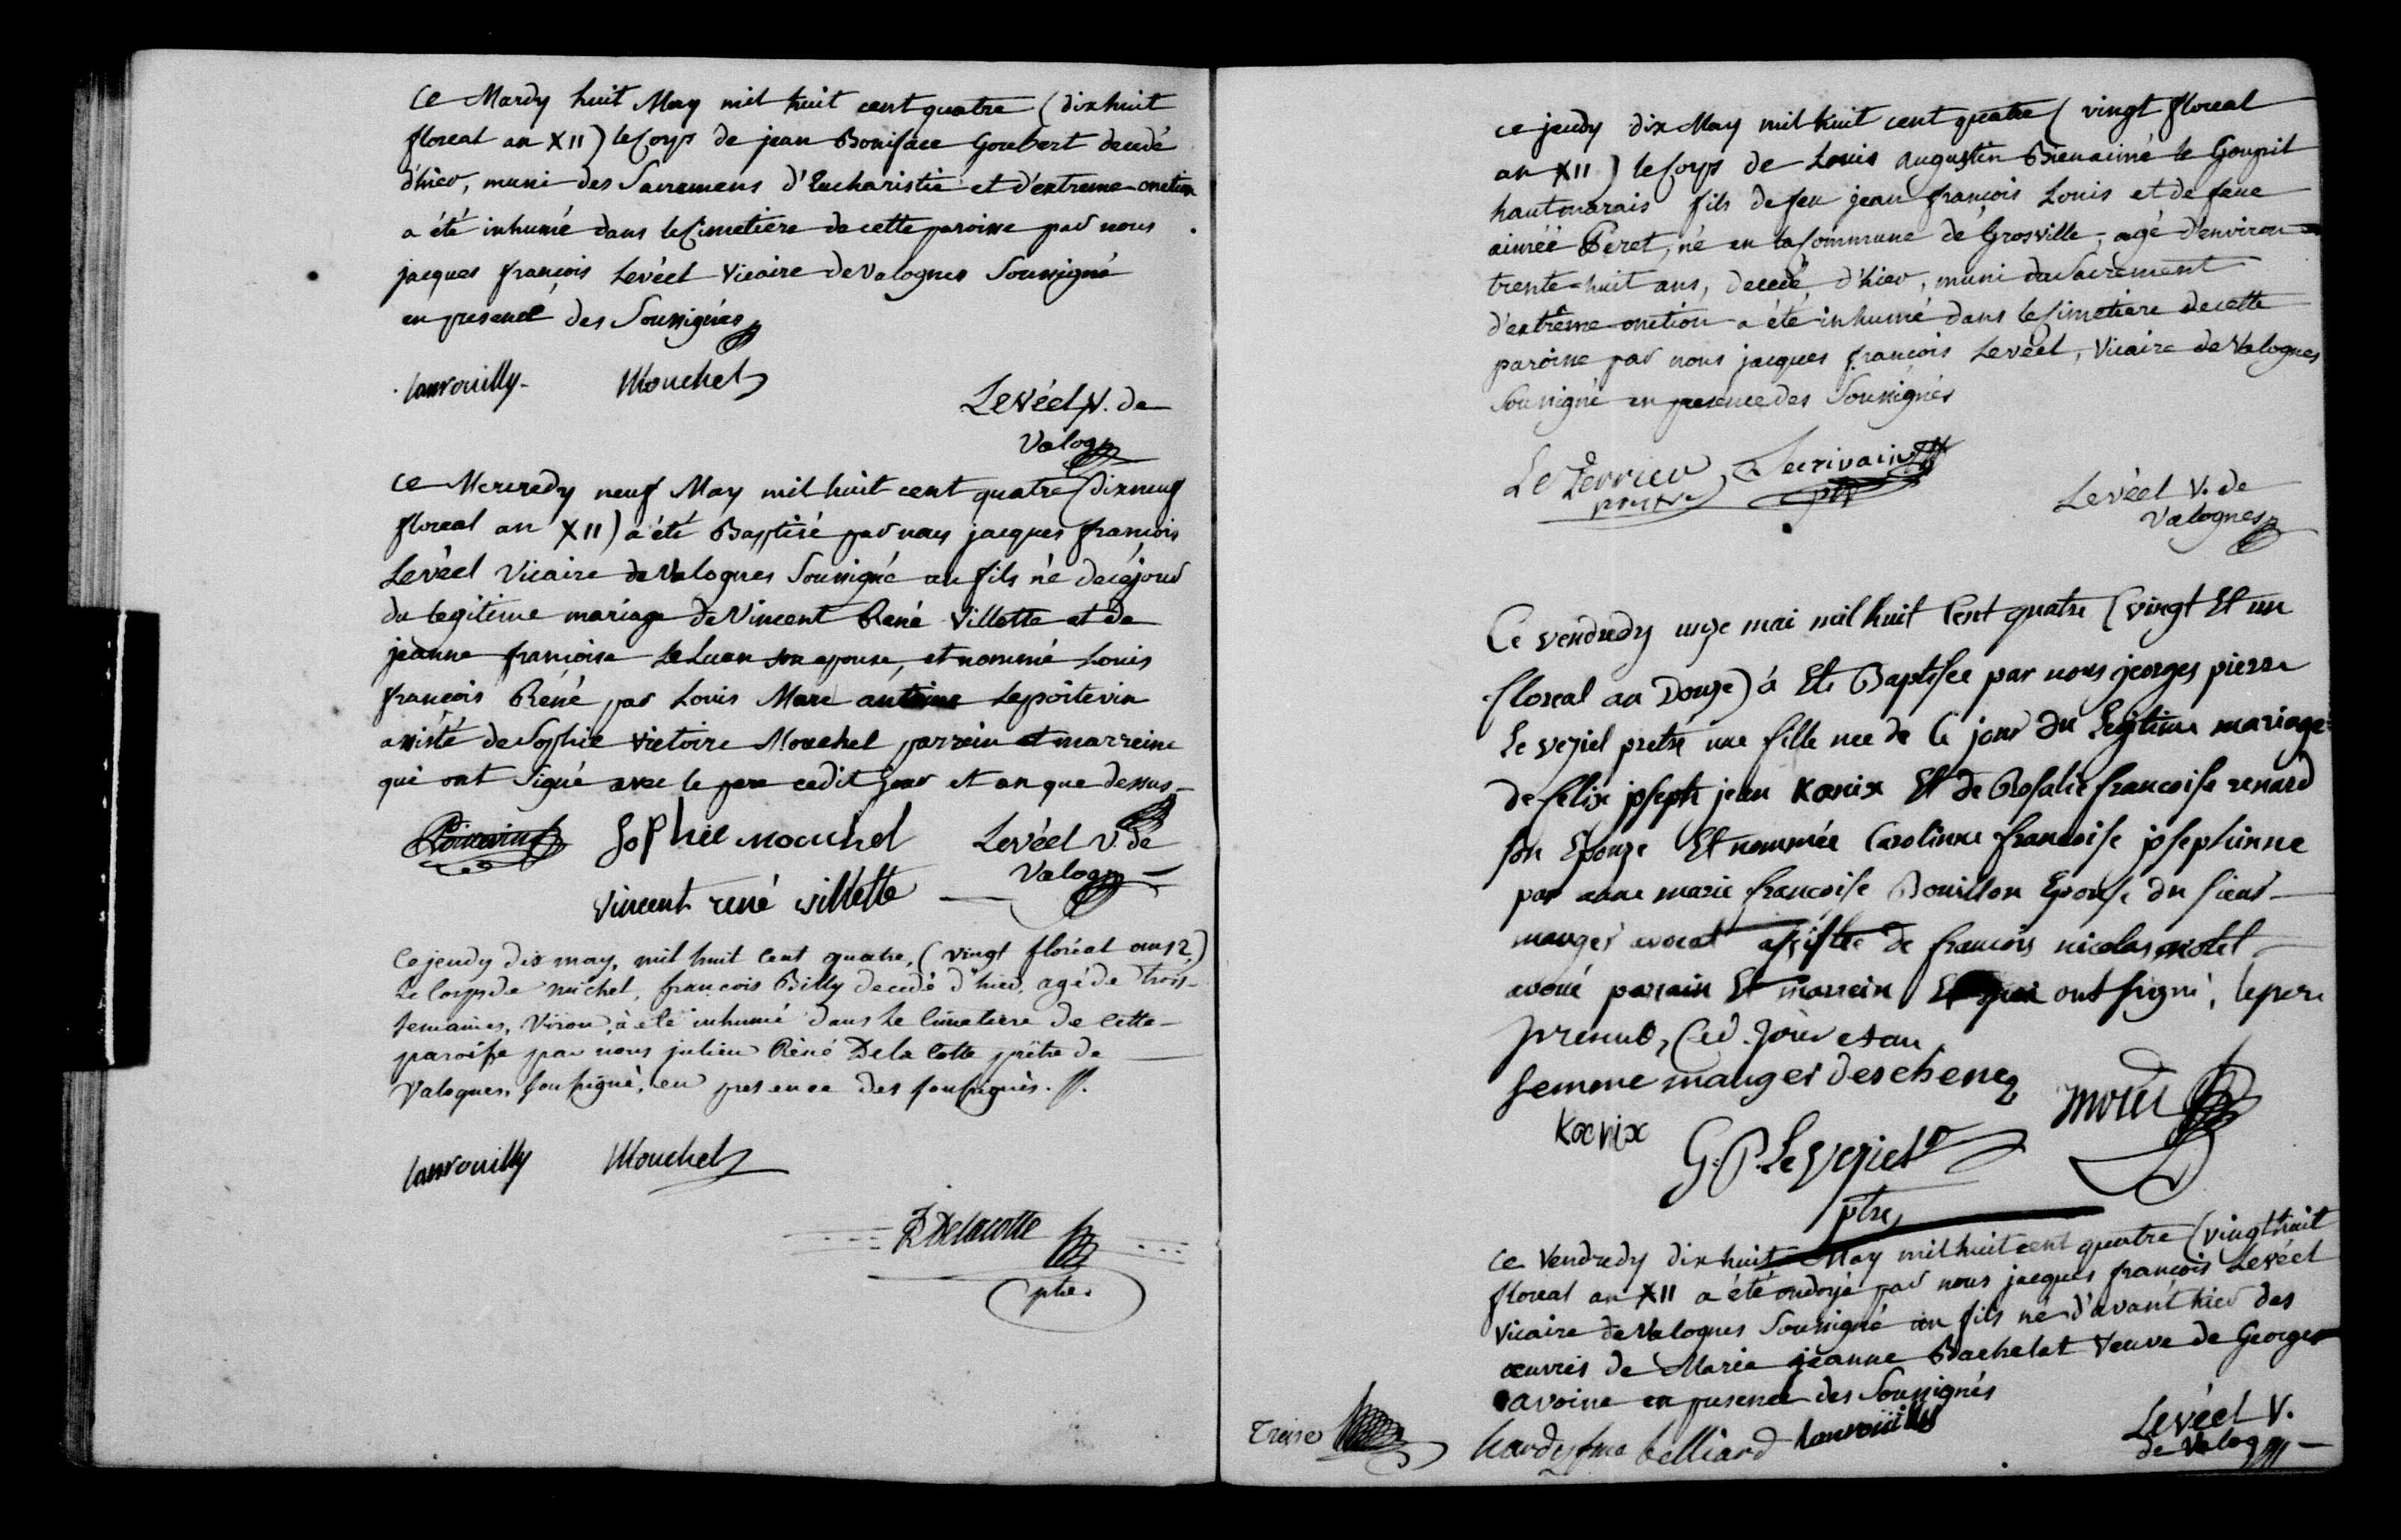 Ce Mardy huit May mil huit cent quatre (dix huit
floreal an XII) le Corps de jean Boniface Goubert decedé
d'hier, muni des Sacremens d'Eucharistie et d'extreme onction
a été inhumé dans le Cimetiere de cette paroisse par nous
jacques françois Levéel Vicaire de Valognes Soussigné
en presence des Soussignés
Lanrouilly Mouchel
Levéel V. de
Valog
Ce Mercredy neuf May mil huit cent quatre (dix neuf
floreal an XII) a été Baptisé par nous jacques françois
Levéel Vicaire de Valognes Soussigné un fils né de ce jour
du legitime mariage de Vincent René Villette et de
jeanne françoise Le Luan son epouse, et nommé Louis
françois René par Louis Marc antoine Lepoitevin
assisté de Sophie Victoire Mouchel parrein et marreine
qui ont Signé avec le pere cedit jour et an que dessus
Sophie mouchel Levéel V. de
Valog
vincent rené villette
Ce jeudy dix may, mil huit cent quatre, (vingt floréal an 12)
Le Corps de michel, françois Billy decedé d'hier, agé de trois
semaines, viron, à été inhumé dans le cimetiere de cette
paroisse par nous julien René Delacotte prêtre de
Valognes, soussigné, en presence des soussignés.
Lanrouilly Mouchel
R Delacotte
ptre.
ce jeudy dix May mil huit cent quatre (vingt floreal
an XII) le Corps de Louis augustin Bienaimé le Goupil
hautmarais fils de feu jean françois Louis et de feue
aimée Peret, né en la Commune de Grosville, agé d'environ
trente-huit ans, decedé d'hier, muni du Sacrement
d'extrême onction a été inhumé dans le Cimetiere de cette
paroisse par nous jacques françois Levéel, Vicaire de Valognes
Soussigné en presence des Soussignés
Le Terrier Lecrivain
prêtre ptre
Levéel V. de
Valognes
Ce vendredy unze mai mil huit Cent quatre (vingt Et un
floreal an Douze) à Eté Baptisée par nous georges pierre
Le vejiel pretre une fille nee de Ce jour du Legitime mariage
de felix joseph jean Kornix Et de Rosalie francoise renard
son Epouze Et nommée Carolinne francoise josephinne
par anne marie francoise Bouillon Epouse du sieur
mauger avocat assistée de francois nicolas motel
avoué parrain Et marrein Et qui ont signé, le pere
present, Ced. Jour et an
femme mauger deschenez
Kornix G. P. Le Vejiel
ptre
Ce Vendredy dix huit May mil huit cent quatre (vingt huit
floreal an XII a été ondoyé par nous jacques françois Levéel
Vicaire de Valognes Soussigné un fils né d'avant hier des
œuvres de Marie jeanne Bachelet Veuve de Georges
avoine en presence des Soussignés
Levéel V.
de Valog
Treize hardy fme belliard Lanrouilly